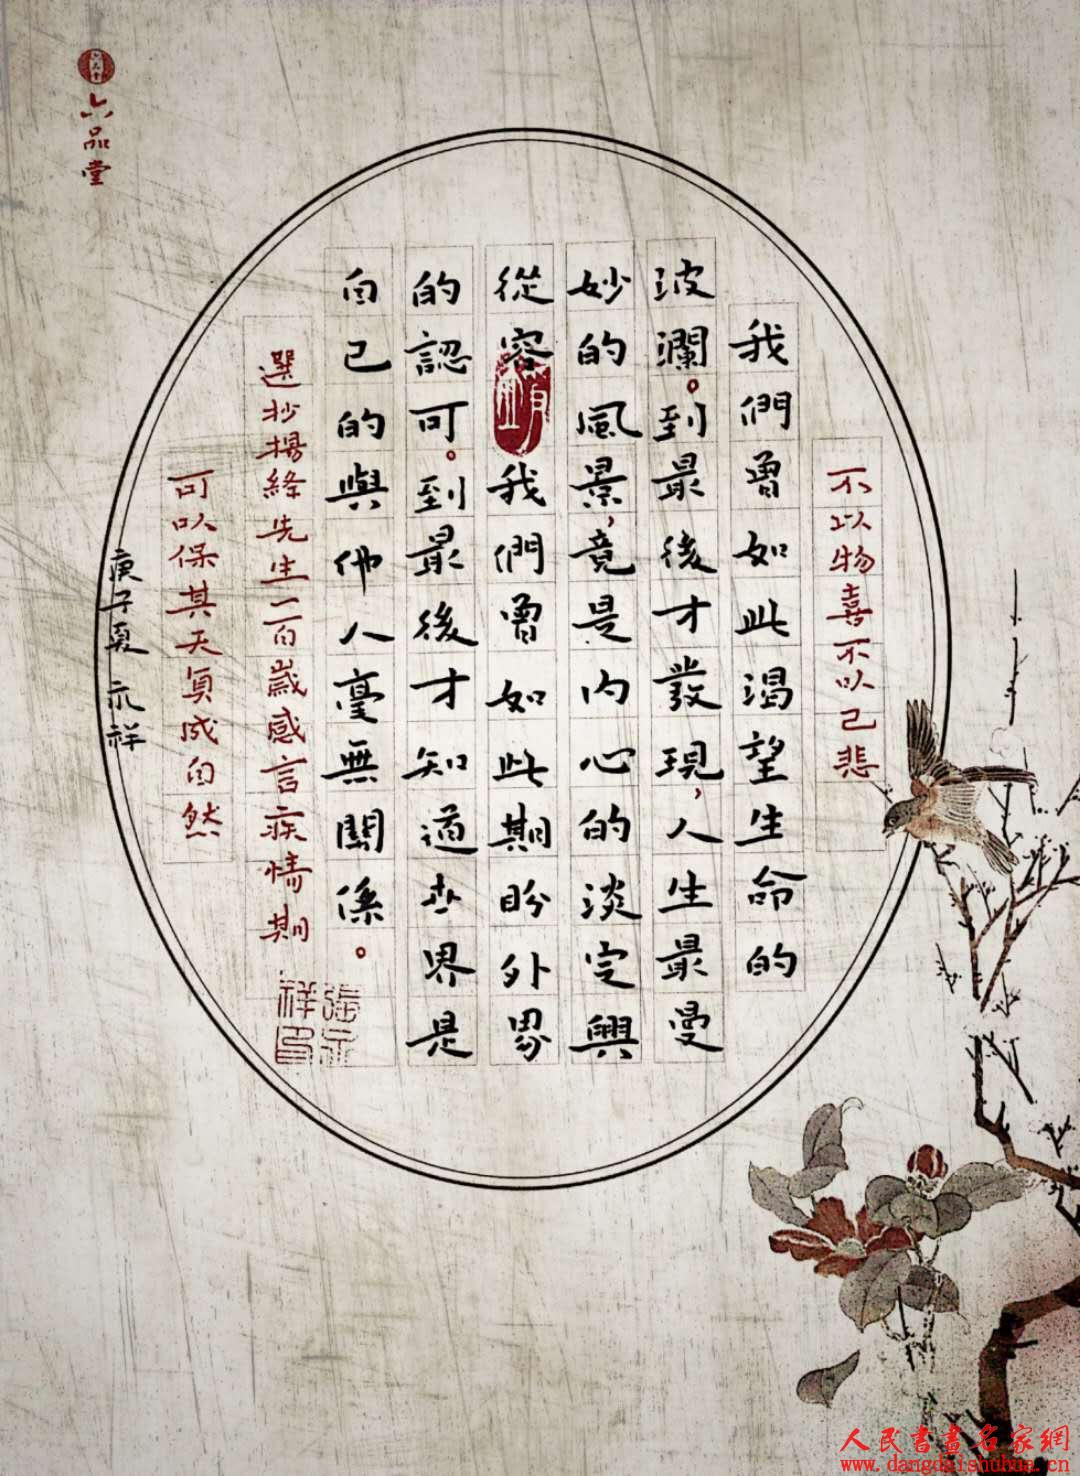 六品堂
六品堂
不以物喜不以己悲
我們曾如此渴望生命的
波瀾。到最後才發現，人生最曼
妙的風景，竟是内心的淡定興
從容 我們曾如此期盼外界
的認可。到最後才知道世界是
自己的與他人毫無關係。
選抄楊絳先生一百歲感言疾情期
可以保其天真成自然
庚子夏 永祥
張永
祥印
人民書畫名家網
www.dangdaishuhua.cn